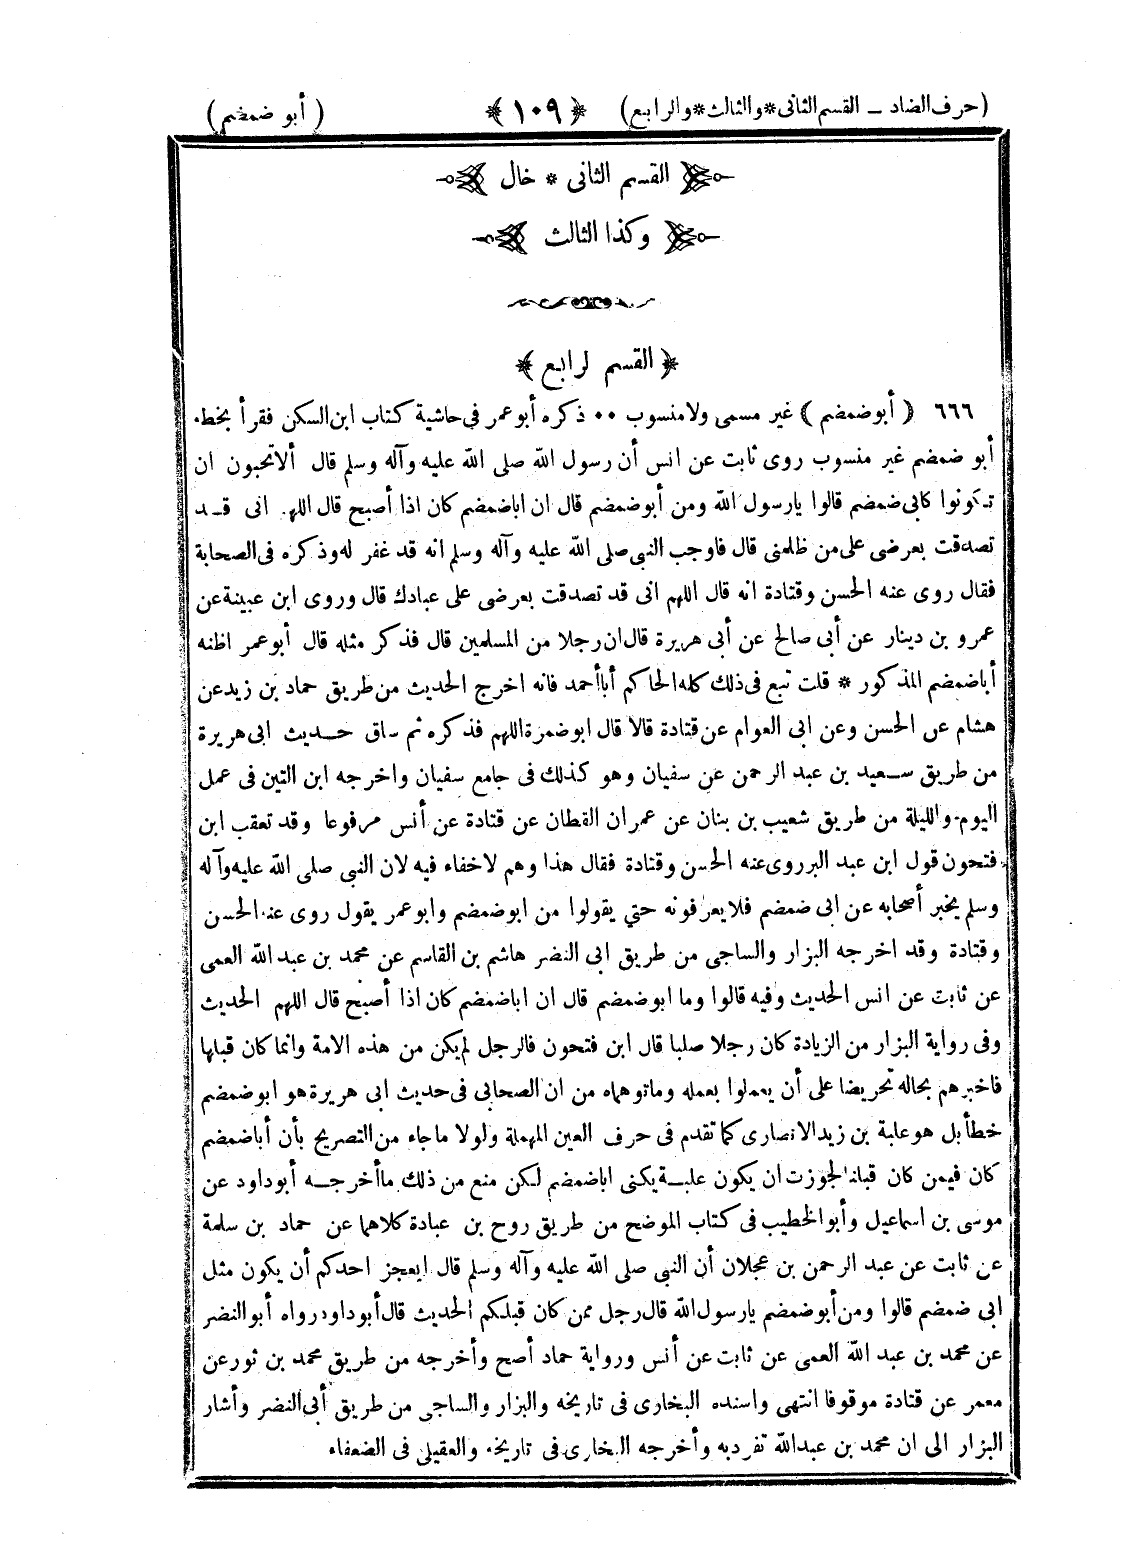 (حرف الضاد – القسم الثانى * والثالث * والرابع) ﴿ ١٠٩ ﴾ (أبو ضمضم)
القسم الثانى * خال
وكذا الثالث
﴿ القسم لرابع ﴾
٦٦٦ ﴿ أبو ضمضم ﴾ غير مسمى ولا منسوب ٠٠ ذكره أبو عمر فى حاشية كتاب ابن السكن فقرأ بخطه
أبو ضمضم غير منسوب روى ثابت عن انس أن رسول الله صلى الله عليه وآله وسلم قال ألا تحبون ان
تكونوا كابى ضمضم قالوا يارسول الله ومن أبو ضمضم قال ان اباضمضم كان اذا أصبح قال اللهم انى قد
تصدقت بعرضى على من ظلمنى قال فاوجب النبى صلى الله عليه وآله وسلم انه قد غفر له وذكره فى الصحابة
فقال روى عنه الحسن وقتادة انه قال اللهم انى قد تصدقت بعرضى على عبادك قال وروى ابن عيينة عن
عمرو بن دينار عن أبى صالح عن أبى هريرة قال ان رجلا من المسلمين قال فذكر مثله قال أبو عمر اظنه
أباضمضم المذكور * قلت تبع فى ذلك كله الحاكم أبا أحمد فانه اخرج الحديث من طريق حماد بن زيد عن
هشام عن الحسن وعن ابى العوام عن قتادة قالا قال ابو ضمرة اللهم فذكره ثم ساق حديث ابى هريرة
من طريق سعيد بن عبد الرحمن عن سفيان وهو كذلك فى جامع سفيان واخرجه ابن التين فى عمل
اليوم والليلة من طريق شعيب بن بنان عن عمران القطان عن قتادة عن أنس مرفوعا وقد تعقب ابن
فتحون قول ابن عبد البر روى عنه الحسن وقتادة فقال هذا وهم لا خفاء فيه لان النبى صلى الله عليه وآله
وسلم يخبر أصحابه عن ابى ضمضم فلا يعرفونه حتي يقولوا من ابو ضمضم وابو عمر يقول روى عنه الحسن
وقتادة وقد اخرجه البزار والساجى من طريق ابى النضر هاشم بن القاسم عن محمد بن عبد الله العمى
عن ثابت عن انس الحديث وفيه قالوا وما ابو ضمضم قال ان اباضمضم كان اذا أصبح قال اللهم الحديث
وفى رواية البزار من الزيادة كان رجلا صلبا قال ابن فتحون فالرجل لم يكن من هذه الامة وانما كان قبلها
فاخبرهم بحاله تحريضا على أن يعملوا بعمله وما توهماه من ان الصحابى فى حديث ابى هريرة هو ابو ضمضم
خطأ بل هو علبة بن زيد الانصارى كما تقدم فى حرف العين المهملة ولولا ما جاء من التصريح بأن أباضمضم
كان فيمن كان قبلنا لجوزت ان يكون علبة يكنى اباضمضم لكن منع من ذلك ما أخرجه أبو داود عن
موسى بن اسماعيل وأبو الخطيب فى كتاب الموضح من طريق روح بن عبادة كلاهما عن حماد بن سلمة
عن ثابت عن عبد الرحمن بن عجلان أن النبى صلى الله عليه وآله وسلم قال ايعجز احدكم أن يكون مثل
ابى ضمضم قالوا ومن أبو ضمضم يارسول الله قال رجل ممن كان قبلكم الحديث قال أبو داود رواه أبو النضر
عن محمد بن عبد الله العمى عن ثابت عن أنس ورواية حماد أصح وأخرجه من طريق محمد بن ثور عن
معمر عن قتادة موقوفا انتهى واسنده البخارى فى تاريخه والبزار والساجى من طريق أبى النضر وأشار
البزار الى ان محمد بن عبدالله تفرد به وأخرجه البخارى فى تاريخه والعقيلى فى الضعفاء